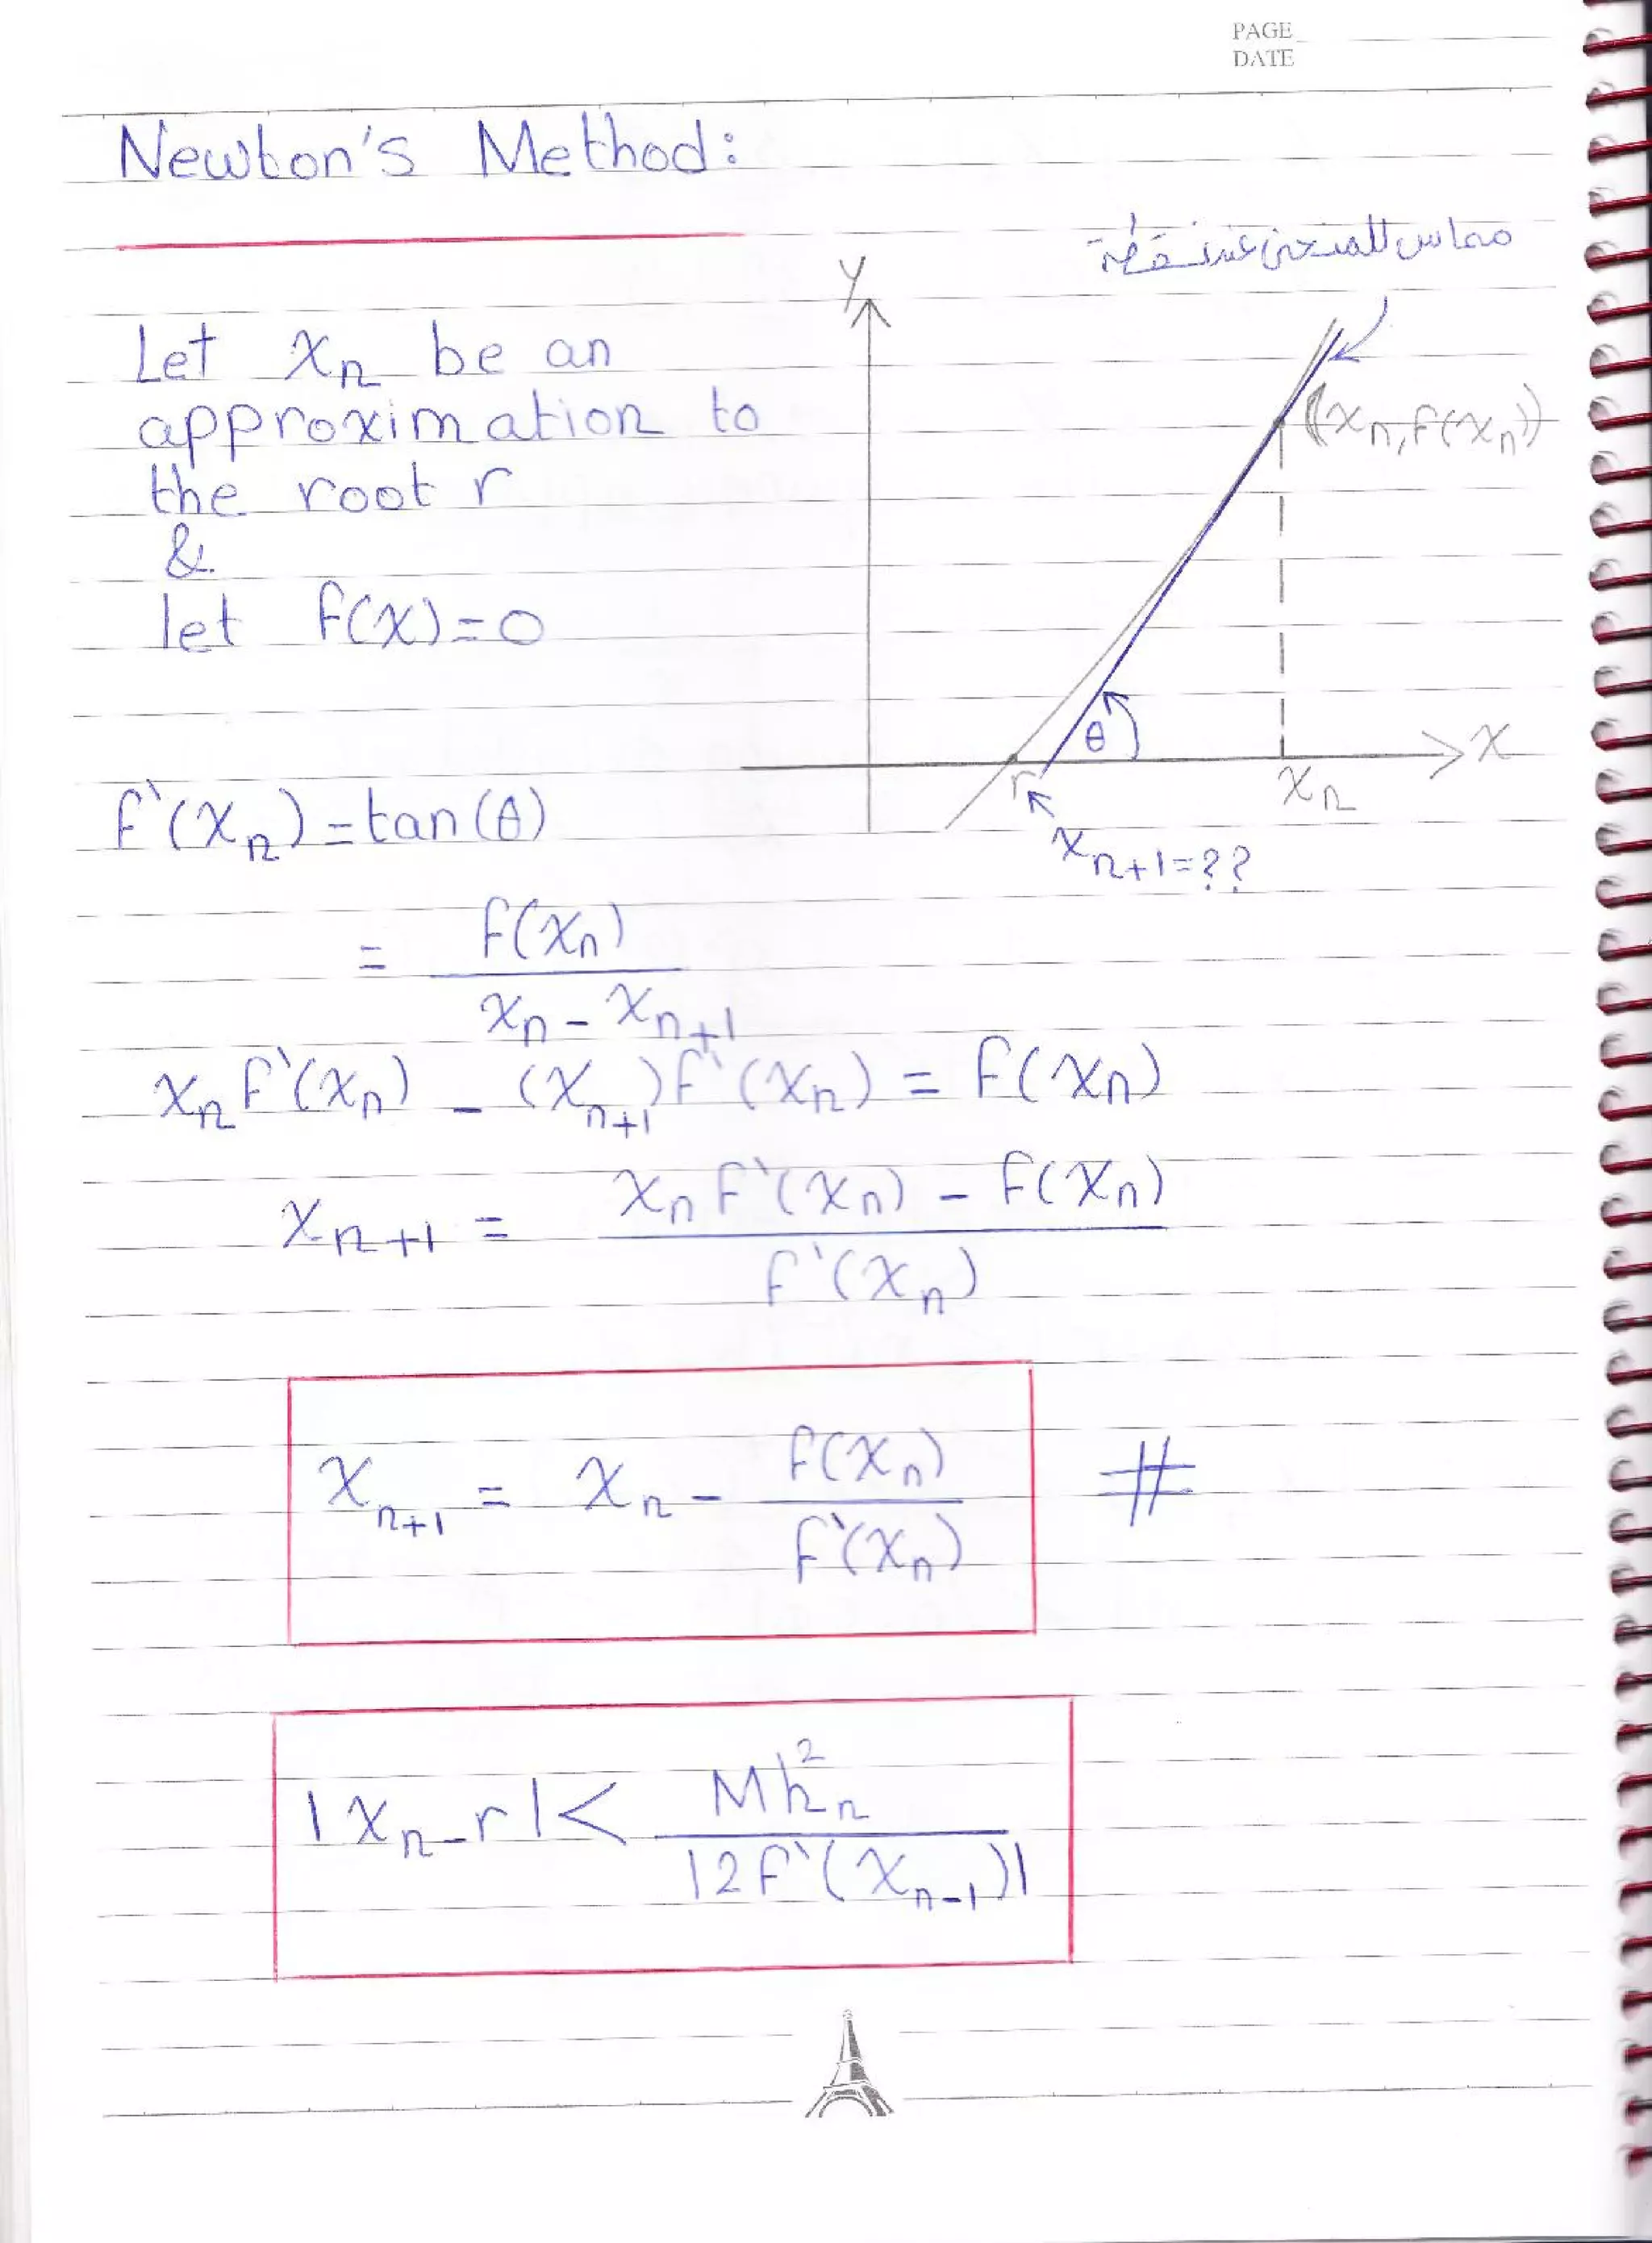 PAGE
DATE
Newton's Method:
مماس للمنحنى عند نقطة
y
Let xₙ be an
approximation to
the root r
&
let f(x)=0
(xₙ, f(xₙ))
θ
x
r
xₙ
xₙ₊₁=??
f`(xₙ) = tan(θ)
= f(xₙ) / xₙ - xₙ₊₁
xₙ f`(xₙ) - (xₙ₊₁) f`(xₙ) = f(xₙ)
xₙ₊₁ = xₙ f`(xₙ) - f(xₙ) / f`(xₙ)
xₙ₊₁ = xₙ - f(xₙ) / f`(xₙ) #
|xₙ - r| < Mhₙ² / |2f`(xₙ₋₁)|